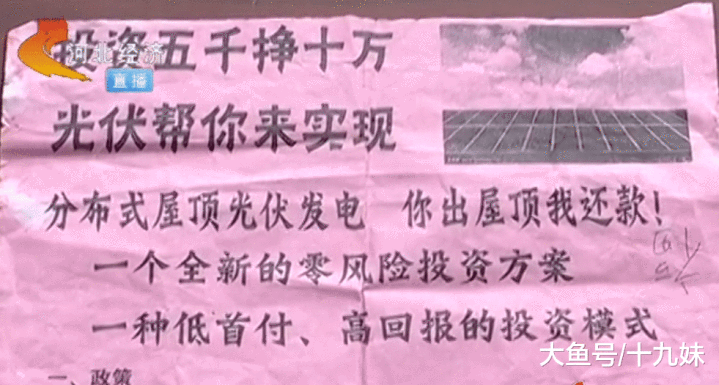 河北经济
直播
投资五千挣十万
光伏帮你来实现
分布式屋顶光伏发电 你出屋顶我还款!
一个全新的零风险投资方案
一种低首付、高回报的投资模式
一、政策
大鱼号/十九妹